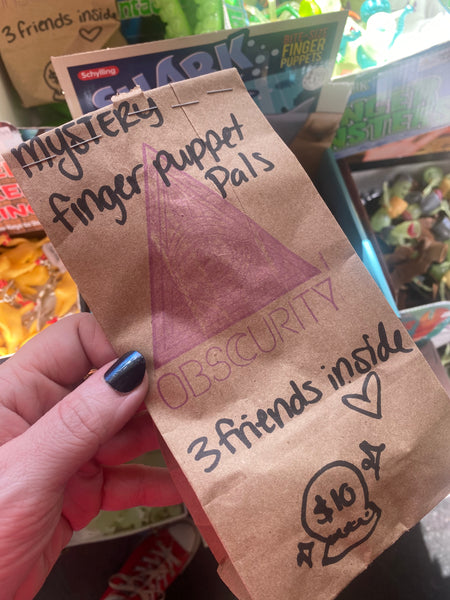 3 friends inside
Schylling
SHARK
BITE-SIZE
FINGER
PUPPETS
mySTERY
finger puppet
Pals
OBSCURITY
3 friends inside
$10